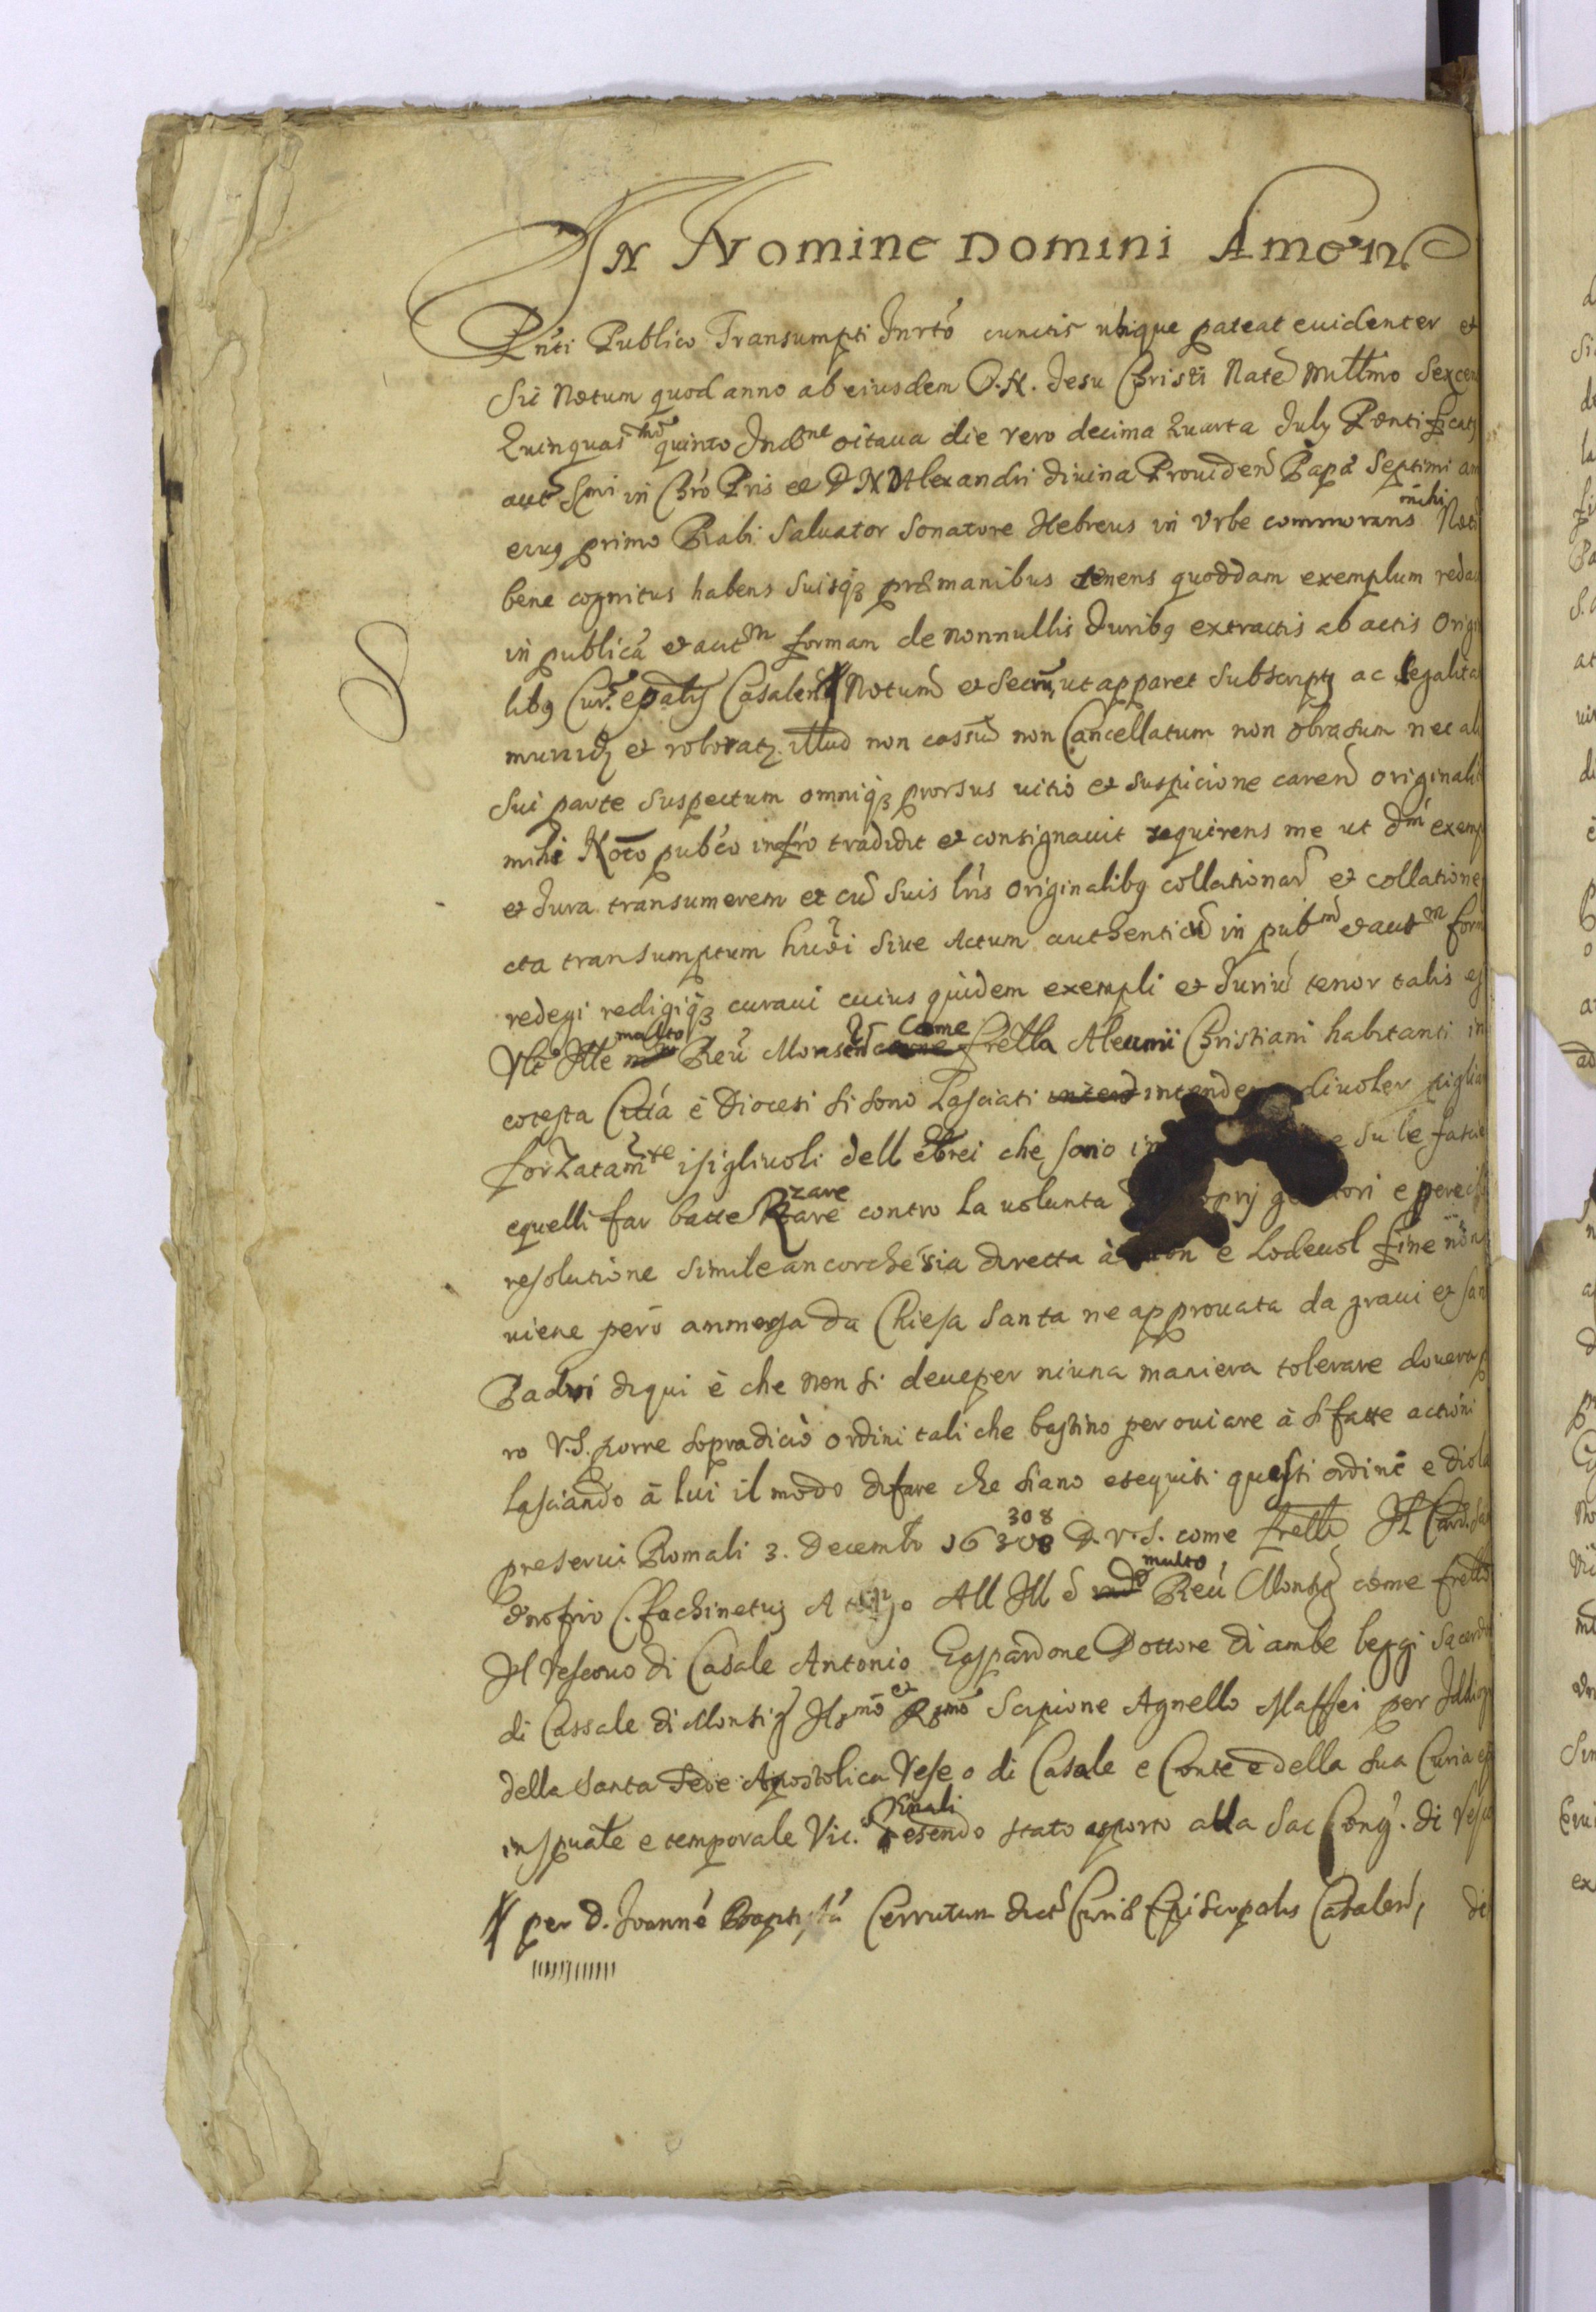 IN Nomine Domini Amen
Pnti Publico Transumpti Inrto cunctis ubique pateat euidenter et
Sit Notum quod anno ab eiusdem D.N. Iesu Christi Natē Millmo Sexcen
Quinquasmo quinto Indne octaua die vero decima Quarta Iuly Pontificatq
aut Smi in Chro Pris et D N D Alexandri diuina Prouiden Papæ Septimi an
eiuq primo Rabi Saluator Sonatore Hebreus in Vrbe commorans mihi Noto
bene cognitus habens Suisq3 præ manibus tenens quoddam exemplum redac
in publicā et autm formam de nonnullis Juribq extractis ab actis Origi
libq Cur. epālis Casalen Notum et Secrm, ut apparet Subscriptq ac legalita
munitq et roboratq illud non cassū non Cancellatum non obrasum nec ali
Sui parte Suspectum omniq3 prorsus uitio et Suspicione caren originali
mihi Noto pubco infro tradidit et consignauit requirens me ut dm exemp
et Jura transumerem et cū Suis lris Originalibq collationar et collatione
cta transumptum huōi Siue Actum authenticū in pubm et autm form
redegi redigiq3 curaui cuius quidem exempli et Juriū tenor talis eſ
Vlt Ille molto Reu Monsen Come frello Alcuni Christiani habitanti in
cotesta Cittá è Diocesi Si Sono Lasciati intendere di uoler pigliar
forzatamte i figliuoli dell ebrei che sono in e Su le fatue
e quelli far battezzare contro la uolunta proprij genitori e perche
resolutione Simile ancorche sia diretta à buon e Lodeuol fine non
uiene però ammessa da Chiesa Santa ne approuata da graui et San
Padri di qui è che non Si deue per niuna maniera tolerare douera p
ro V.S. porre Sopradiciò ordini tali che bastino per ouiare à Si fatte actioni
lasciando à lui il modo di fare che Siano esequiti questi ordini e Dio la
preserui Roma li 3. Decemb 16308 308 D. V.S. come frello Il Card. San
Onofrio C. Fachinetuq A tergo All Ill e multo Reu Monsig come frello
Il Vescouo di Casale Antonio Gaspardone Dottore di ambe leggi Sacerdo
di Cassale di Monsig Illmo et Rmo Scipione Agnello Maffei per Iddio g
della Santa Sede Apostolica Vesc o di Casale e Conte e della Sua Curia ep
in Spuāle e temporale Vic. Gnali esendo stato esposto alla Sac Cong. di Vesco
per D. Joanné Baptistā Cerrutum dictæ Curiæ Episcopalis Casalen, di